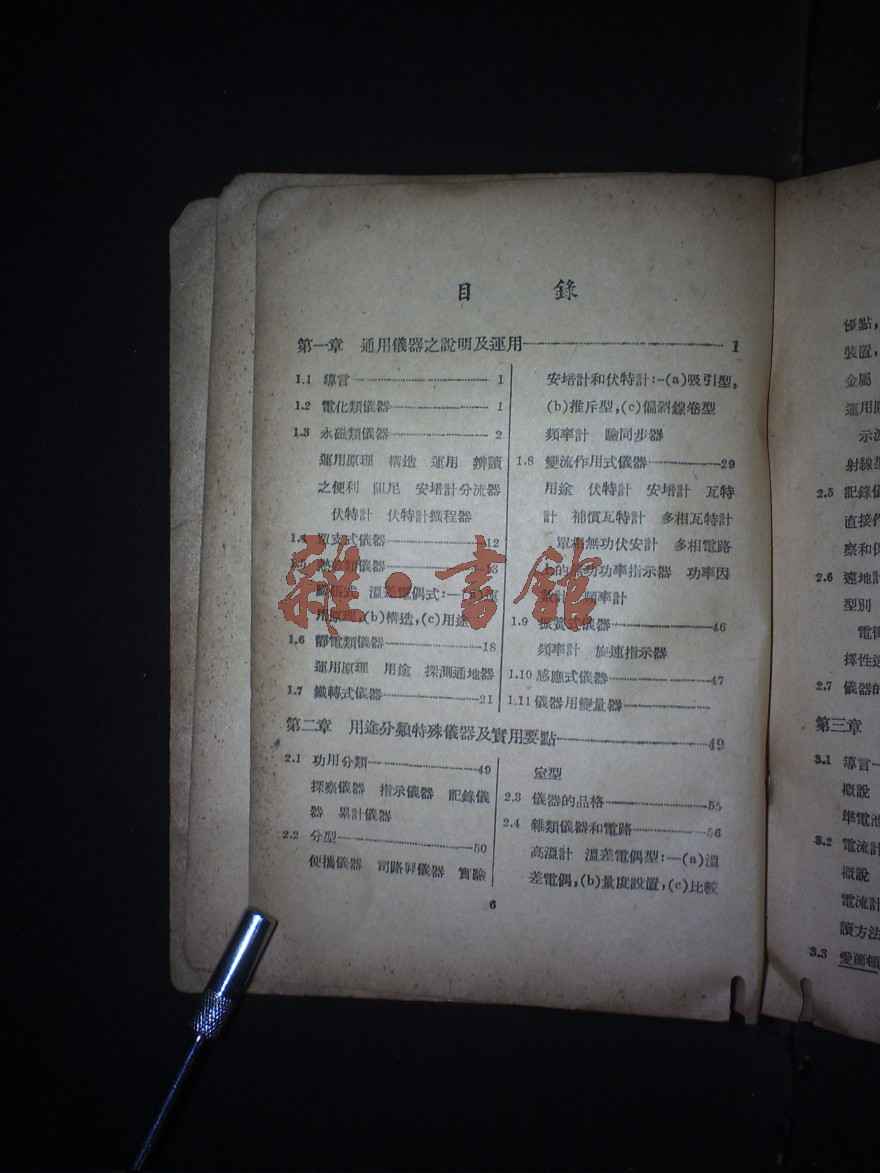 目 錄
第一章 通用儀器之說明及運用 1
1.1 導言 1
1.2 電化類儀器 1
1.3 永磁類儀器 2
運用原理 構造 運用 辨讀
之便利 阻尼 安培計分流器
伏特計 伏特計擴程器
1.4 單支式儀器 12
儀器 13
溫差電偶式:—
(b)構造,(c)用途
1.6 靜電類儀器 18
運用原理 用途 探測通地器
1.7 鐵轉式儀器 21
安培計和伏特計:—(a)吸引型,
(b)推斥型,(c)偏斜線卷型
頻率計 驗同步器
1.8 變流作用式儀器 29
用途 伏特計 安培計 瓦特
計 補償瓦特計 多相瓦特計
單相無功伏安計 多相電路
功率指示器 功率因
頻率計
1.9 振簧式儀器 46
頻率計 旋速指示器
1.10 感應式儀器 47
1.11 儀器用變量器
第二章 用途分類特殊儀器及實用要點 49
2.1 功用分類 49
探察儀器 指示儀器 記錄儀
器 累計儀器
2.2 分型 50
便攜儀器 司路屏儀器 實驗
室型
2.3 儀器的品格 55
2.4 雜類儀器和電路 56
高溫計 溫差電偶型:—(a)溫
差電偶,(b)量度設置,(c)比較
6
優點,
裝置,
金屬
運用原
示波
射線型
2.5 記錄儀
直接作
察和保
2.6 遠地計
型別
電
擇性
2.7 儀器的
第三章
3.1 導言
概說
準電池
3.2 電流計
概說
電流計
讀方法
3.3 愛爾頓
雜·書館